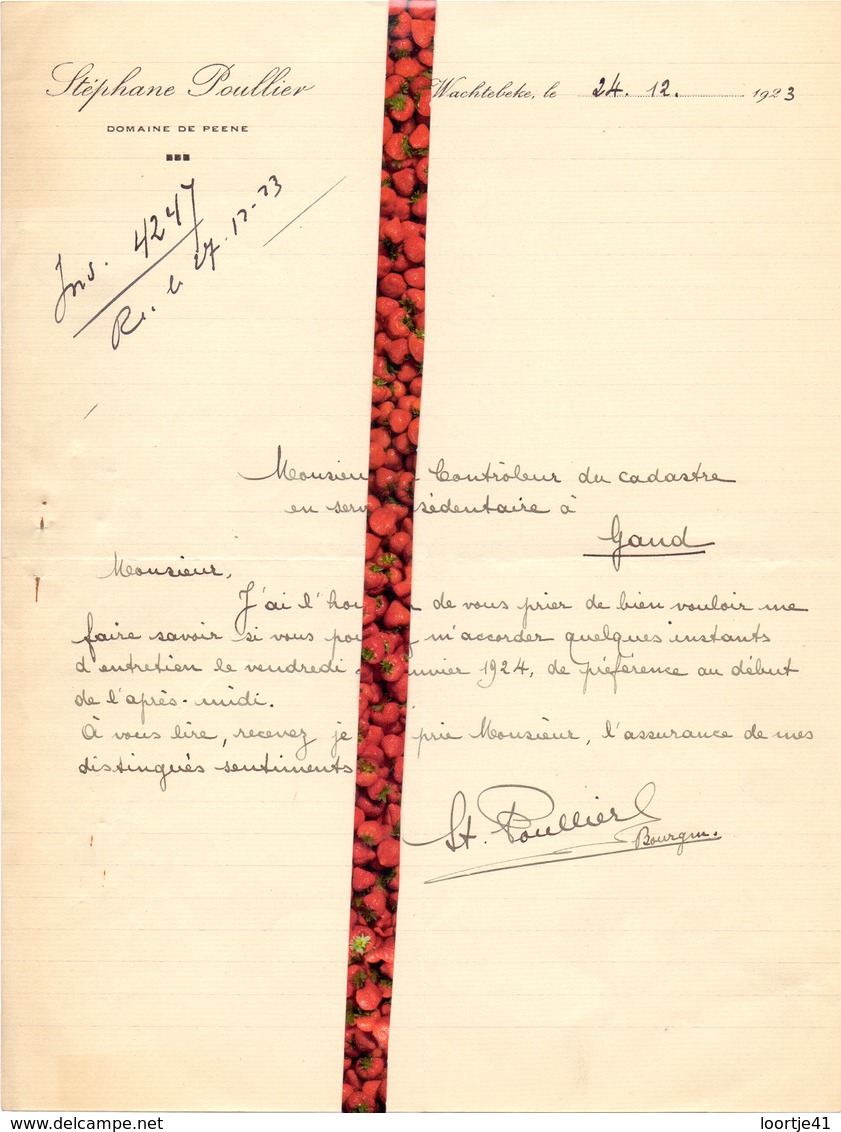 Stéphane Poullier
DOMAINE DE PEENE
Wachtebeke, le 24. 12. 1923
Inv. 4247
Re. le 27. 12-23
Monsieu Contrôleur du cadastre
en serv sédentaire à
Gand
Monsieur,
J'ai l'hon de vous prier de bien vouloir me
faire savoir si vous pou m'accorder quelques instants
d'entretien le vendredi nvier 1924, de préférence au début
de l'après-midi.
À vous lire, recevez je prie Monsieur, l'assurance de mes
distingués sentiments
St. Poullier
Bourgm.
loortje41